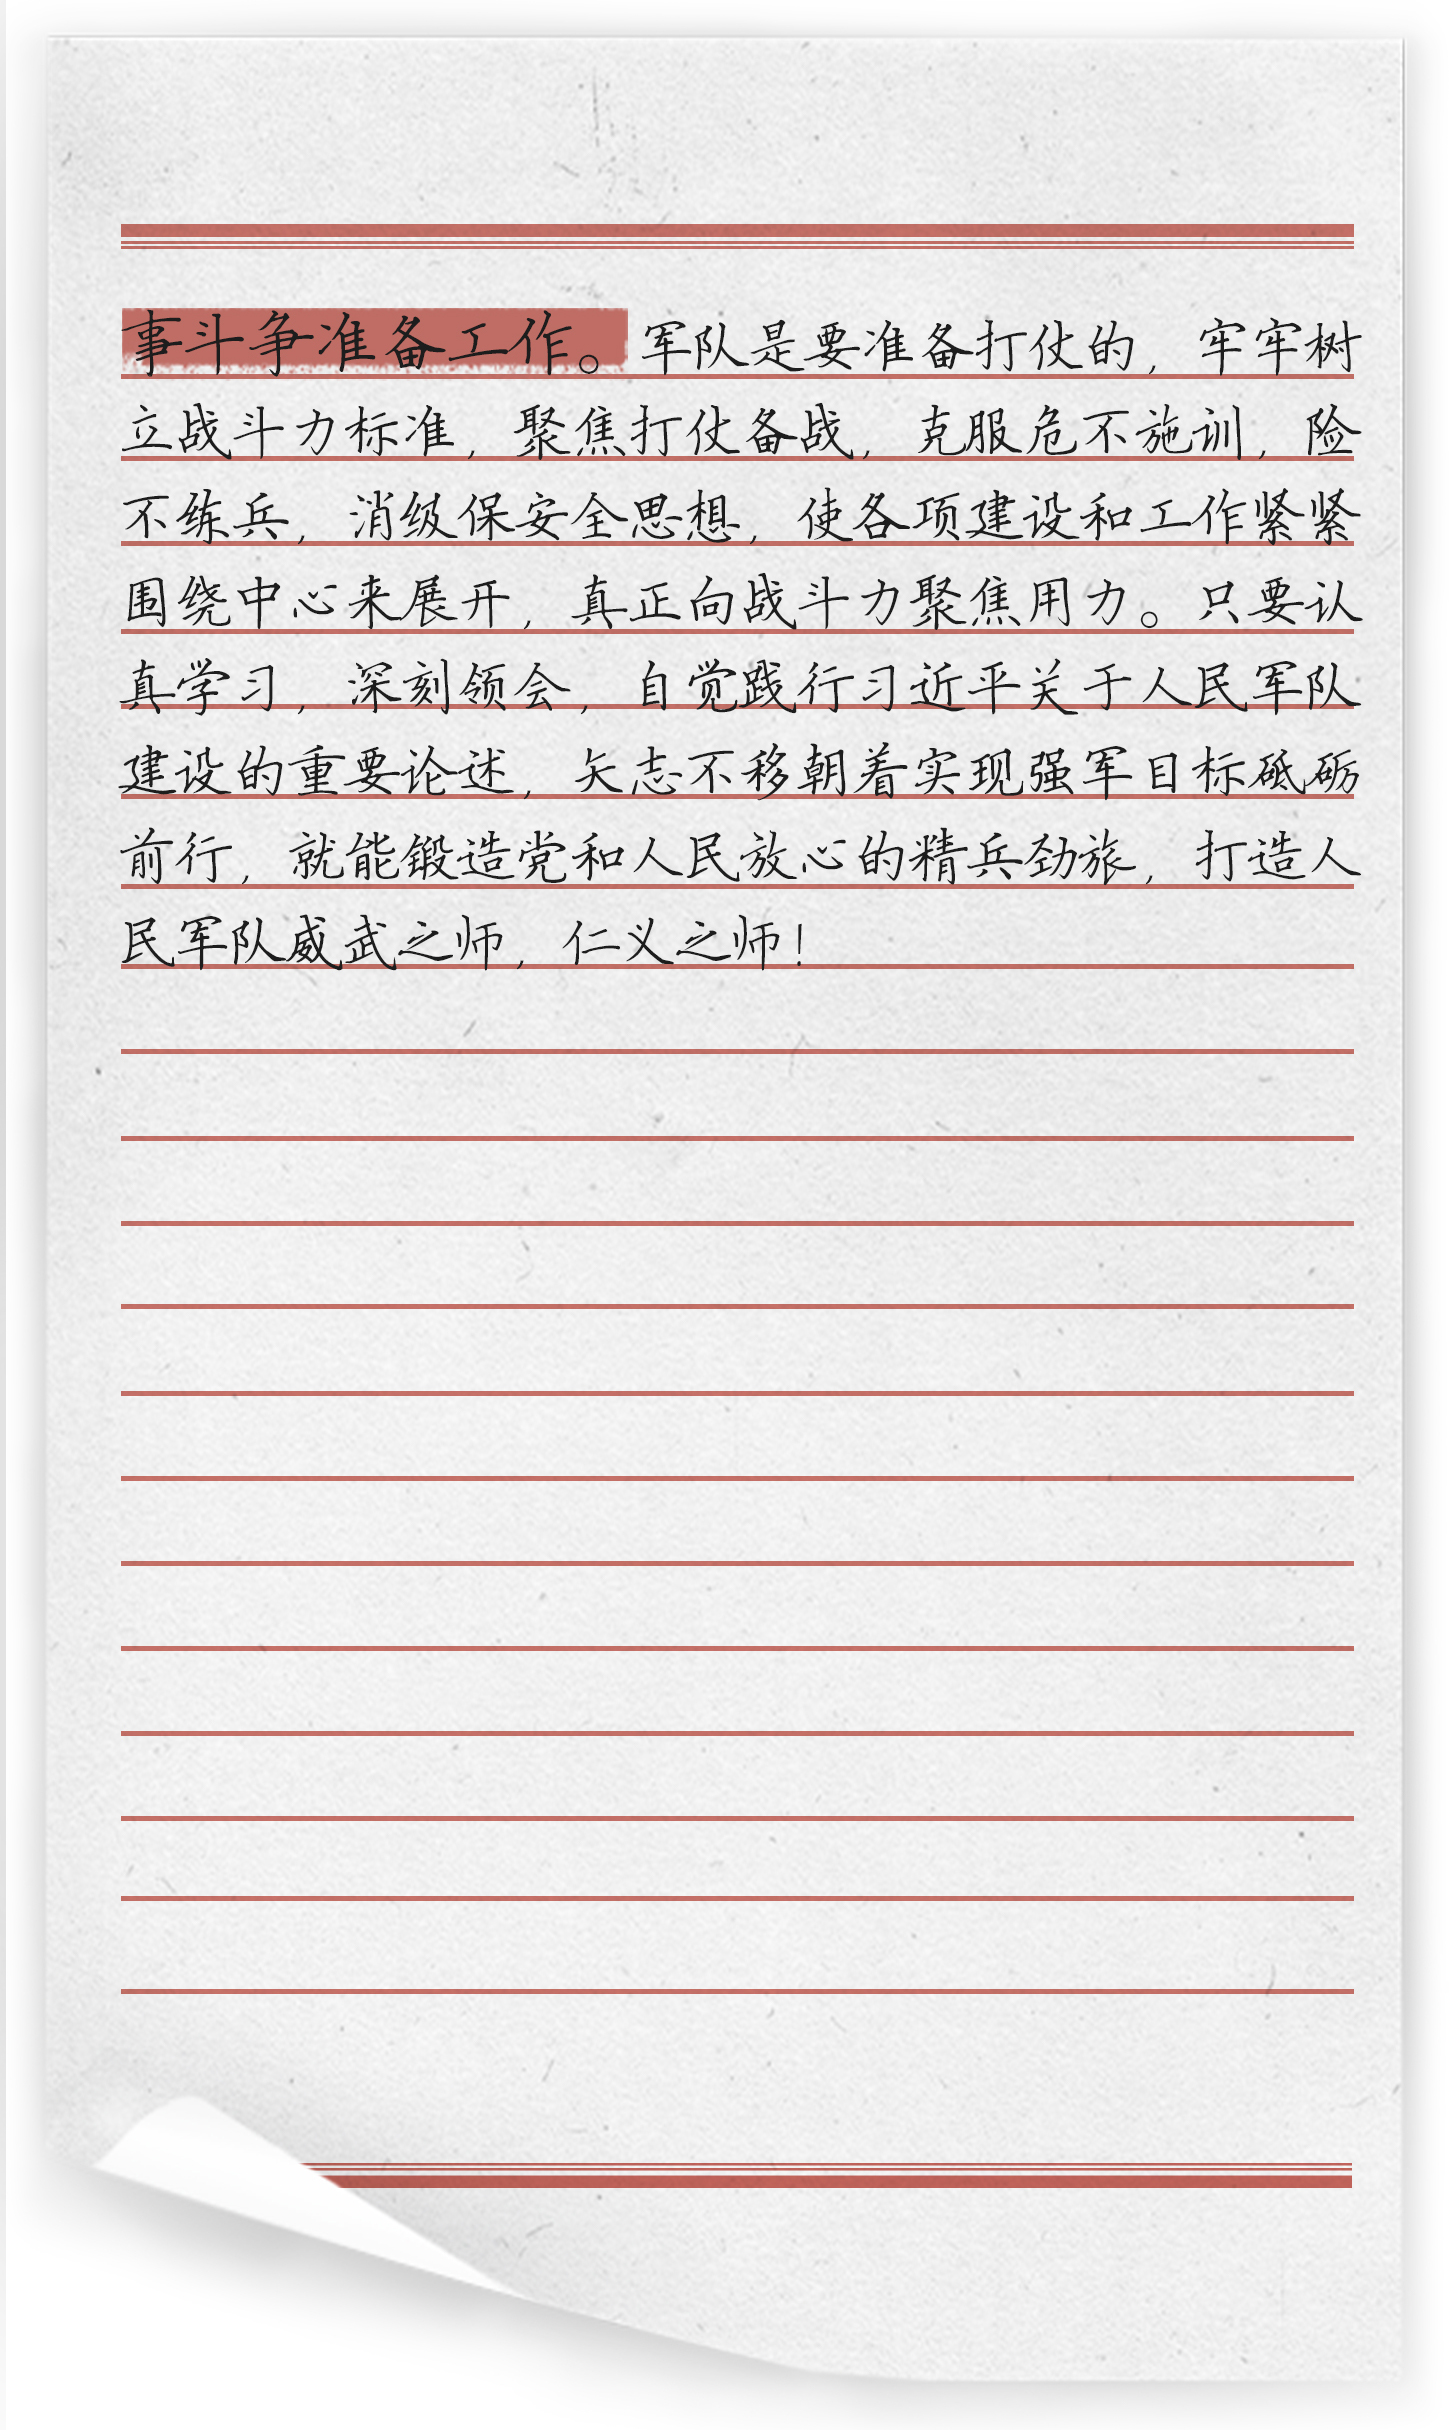 事斗争准备工作。军队是要准备打仗的，牢牢树
立战斗力标准，聚焦打仗备战，克服危不施训，险
不练兵，消级保安全思想，使各项建设和工作紧紧
围绕中心来展开，真正向战斗力聚焦用力。只要认
真学习，深刻领会，自觉践行习近平关于人民军队
建设的重要论述，矢志不移朝着实现强军目标砥砺
前行，就能锻造党和人民放心的精兵劲旅，打造人
民军队威武之师，仁义之师！